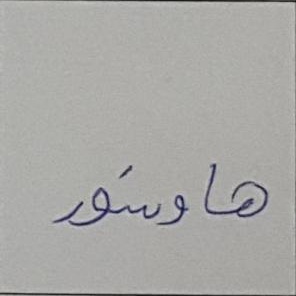 هاوسنور